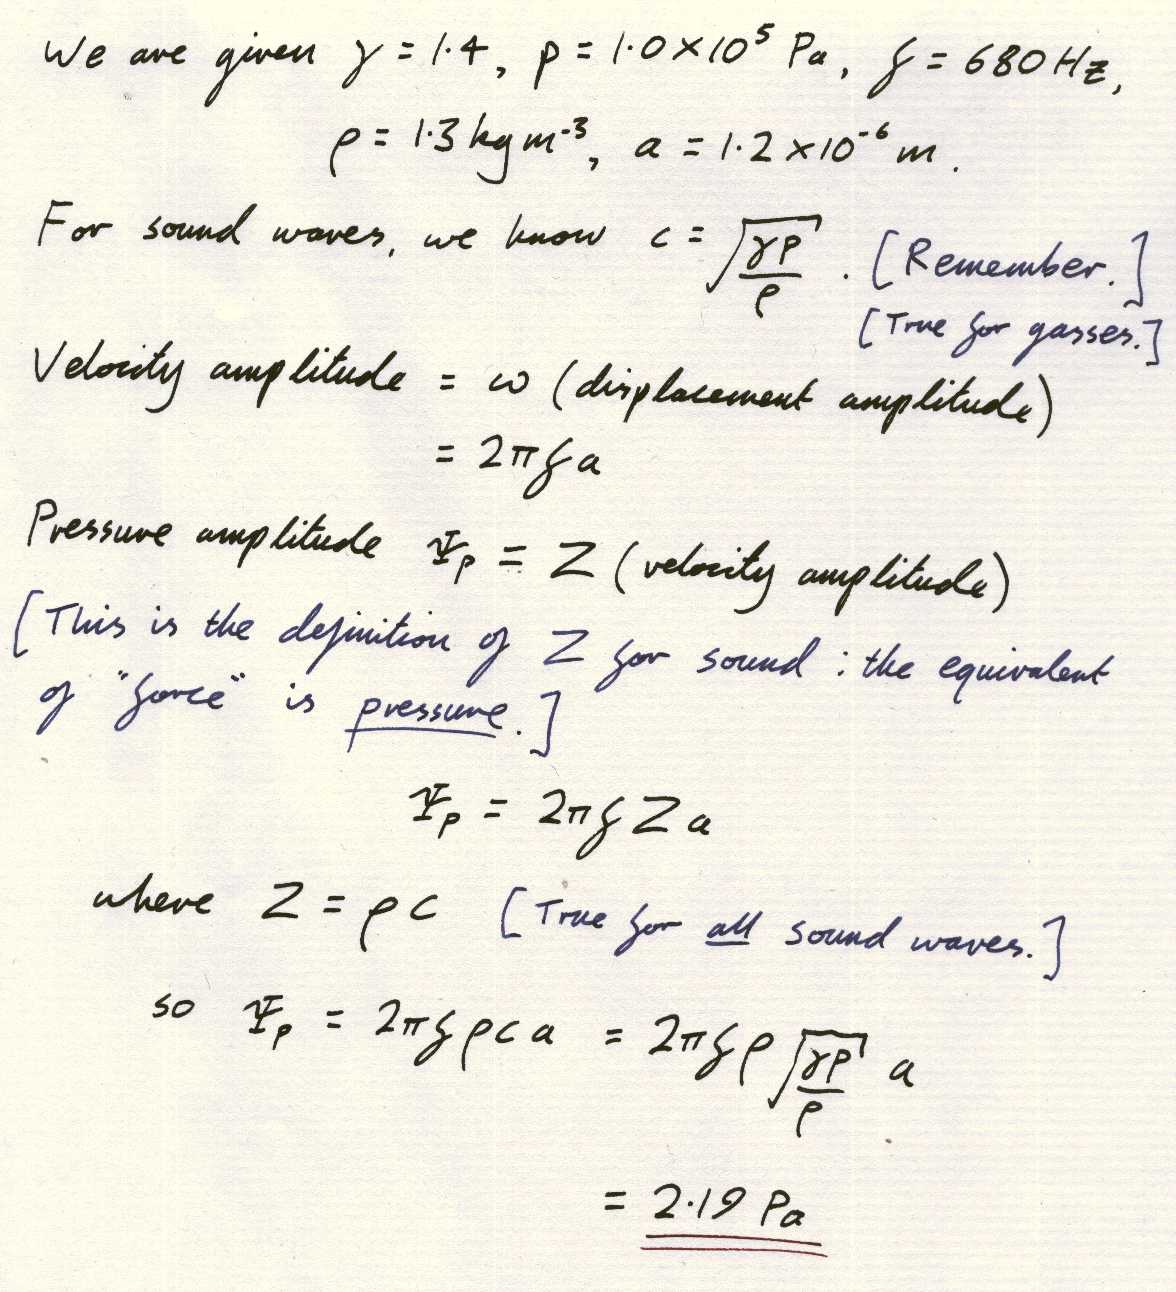 We are given γ = 1.4, p = 1.0 × 10⁵ Pa, f = 680 Hz,
ρ = 1.3 kg m⁻³, a = 1.2 × 10⁻⁶ m.
For sound waves, we know c = √(γp/ρ). [Remember.]
[True for gasses.]
Velocity amplitude = ω (displacement amplitude)
= 2πfa
Pressure amplitude Ψₚ = Z (velocity amplitude)
[This is the definition of Z for sound: the equivalent
of "force" is pressure.]
Ψₚ = 2πfZa
where Z = ρc [True for all sound waves.]
so Ψₚ = 2πfρca = 2πfρ√(γp/ρ) a
= 2.19 Pa